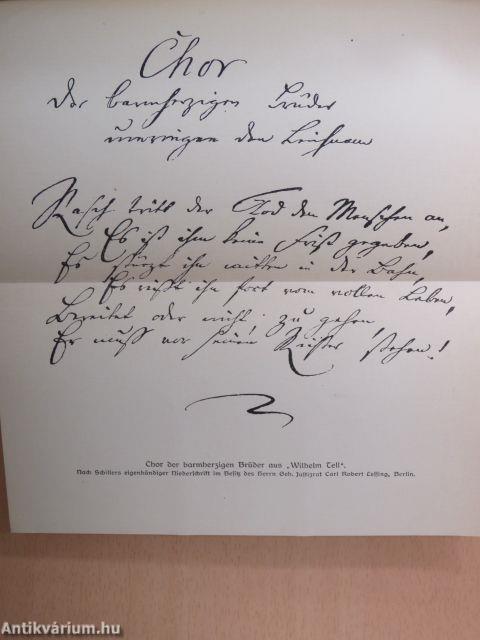 Chor
Der barmherzigen Brüder
umringen den Leichnam
Rasch tritt der Tod den Menschen an,
Es ist ihm keine Frist gegeben,
Es stürzt ihn mitten in der Bahn,
Es reißt ihn fort vom vollen Leben,
Bereitet oder nicht, zu gehen,
Er muß vor seinen Richter stehen!
Chor der barmherzigen Brüder aus „Wilhelm Tell“.
Nach Schillers eigenhändiger Niederschrift im Besitz des Herrn Geh. Justizrat Carl Robert Lessing, Berlin.
Antikvárium.hu